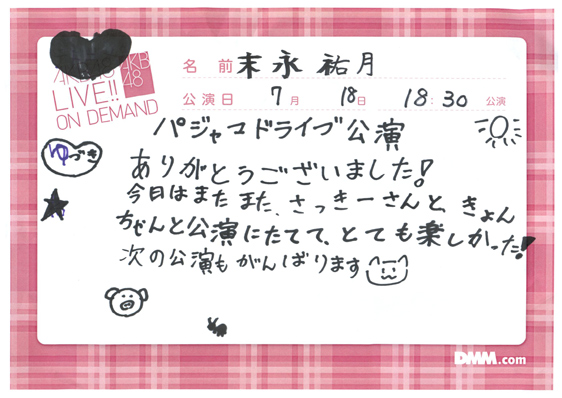 AKB48
LIVE!!
ON DEMAND
AKB
48
名前 末永祐月
公演日 7月 18日 18:30 公演
パジャマドライブ公演
ゆづき
ありがとうございました!
今日はまたまた、さっきーさんと、きょん
ちゃんと公演にたてて、とても楽しかった!
次の公演もがんばります
DMM.com